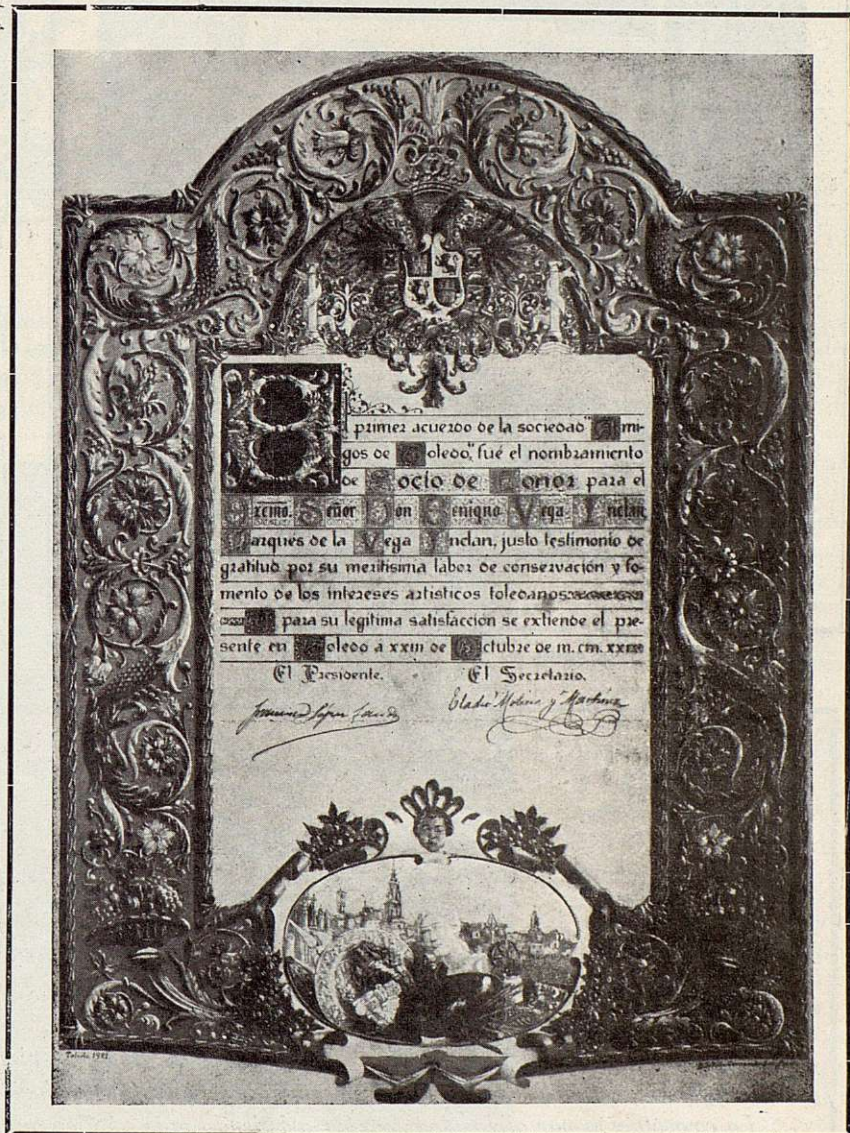 El primer acuerdo de la sociedad "Ami-
gos de Toledo," fué el nombramiento
de Socio de Honor para el
Excmo. Señor Don Benigno Vega Inclan,
Marqués de la Vega Inclan, justo testimonio de
gratitud por su meritisima labor de conservación y fo-
mento de los intereses artisticos toledanos
Y para su legitima satisfacción se extiende el pre-
sente en Toledo á xxiii de Octubre de m. cm.
El Presidente. El Secretario.
Eladio Molina y Martinez
Toledo